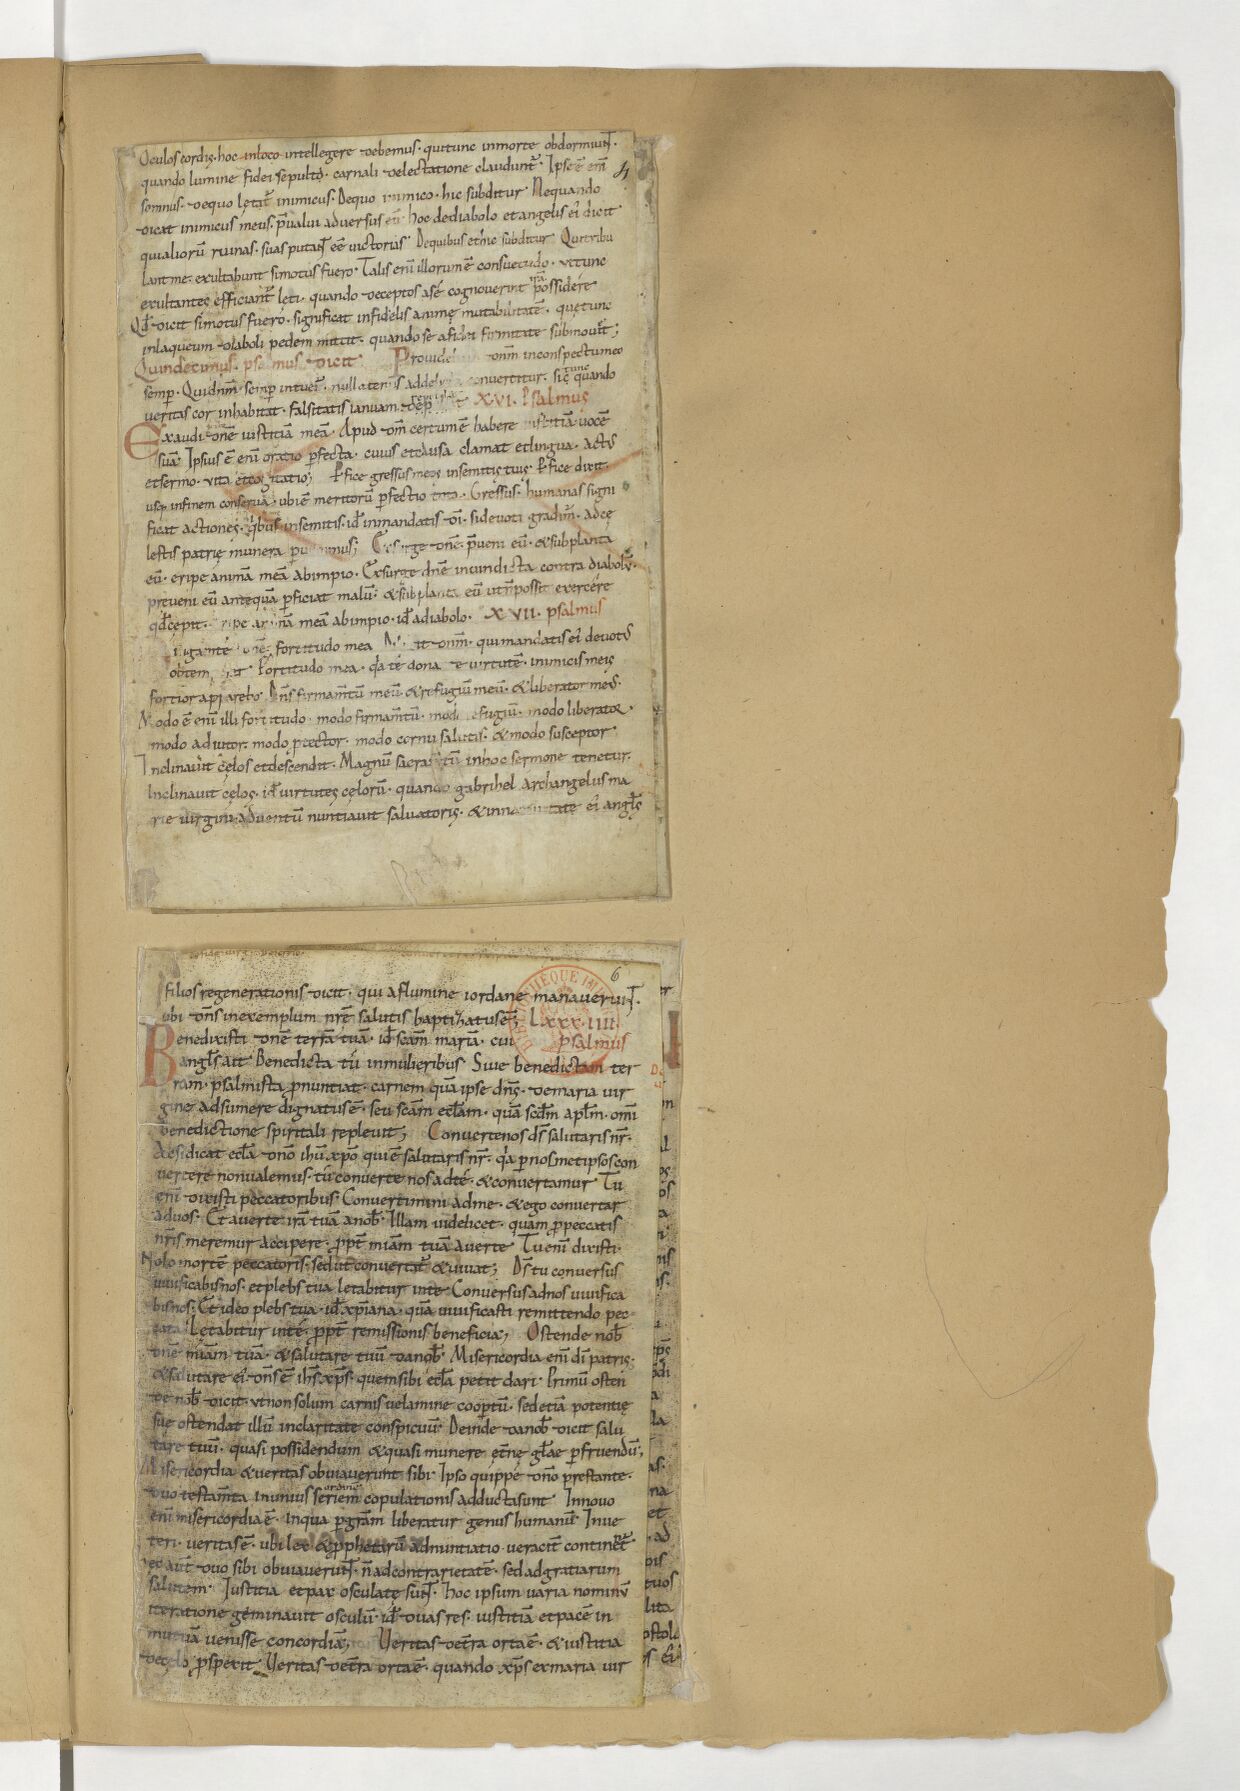 Oculos cordis · hoc inloco intellegere debemus · qui tunc inmorte obdormiunt ·
4
quando lumine fidei sepulto · carnali delectatione clauduntr̄ · Ipse ē enī
somnus · dequo lętat̄ inimicus · Dequo inimico · hic subditur Nequando
dicat inimicus meus · p̄ualui aduersus eū hoc dediabolo et angelis ei dicit
qui aliorū ruinas · suas putant eē uictorias Dequibus et hic subditur Qui tribu
lant me · exultabunt si motus fuero · Talis enī illorum ē consuetudo · ut tunc
exultantes efficiant̄ lęti · quando deceptos a sé cognouerint possidére
Qd̄ dicit si motus fuero · significat infidelis animę mutabilitatē · quę tunc
inlaqueum diaboli pedem mittit · quando se a fidei firmitate submouer̄it ;
Quindecimus · psalmus dicit Prouide dnm̄ inconspectu meo
semp̄ · Quid nm̄ semp̄ intuetr̄ · null conuertitur · sic quando
tunc
ueritas cor inhabitat · falsitatis ianuam XVI · Psalmus
Exaudi dn̄e iustitiā meā · Apud dm̄ certum ē habere iustitiā uocē
suā Ipsius ē enī oratio p̄fecta · cuius et causa clamat et lingua · actus
et sermo · uita et cogitatio ; Pfice gressus meos insemitis tuis · Pfice dixit ·
usq; infinem conserua · ubi ē meritorū p̄fectio Gressus · humanas signi
ficat actiones · qbus insemitis · id̄ inmandatis dī · si deuoti gradim̄ · ad cę
lestis patrię munera Exsurge dn̄e p̄ueni eū · & subplanta
eū · eripe animā meā ab impio · Exsurge dn̄e inuindicta contra diabolū ·
preueni eū antequā p̄ficiat malū · & subplanta eū ut n̄ possit exercére
qd̄ cepit · meā ab impio · id̄ a diabolo · XVII · psalmus
fortitudo mea dnm̄ · qui mandatis ei deuotus
Fortitudo mea · qa té dona e uirtutē · inimicis meis
fortior Dn̄s firmamtū meū & refugiū meū · & liberator meus ·
Modo ē enī illi fortitudo · modo firmamtū · modo refugiū · modo liberator ·
modo adiutor · modo p̄tector · modo cornu salutis · & modo susceptor
Inclinauit cęlos et descendit · Magnū sacramtū inhoc sermone tenetur ·
Inclinauit cęlos · id̄ uirtutes cęlorū · quando gabrihel archangelus ma
rie uirgini aduentū nuntiauit saluatoris · & inna tate ei angls̄
6
filios regenerationis dicit · qui a flumine iordane manauerunt ·
ubi dn̄s inexemplum nrē salutis baptizatus est ; LXXXIIII
Benedixisti dn̄e terrā tuā · id̄ scām mariā · cui psalmus
angls̄ ait Benedicta tú inmulieribus Siue benedictam ter
ram · psalmista p̄nuntiat · carnem quā ipse dn̄s · demaria uir
gine adsumere dignatus ē · seu scām ecl̄am · quā scdm̄ aplm̄ · omī
benedictione spiritali repleuit ; Conuerte nos ds̄ salutaris nr̄ ·
Ac si dicat ecl̄a dnō ihū xp̄o qui ē salutaris nr̄ · qa p̄ nosmet ipsos con
uertere non ualemus · tú conuerte nos ad té · & conuertamur Tu
enī dixisti peccatoribus · Conuertimini ad me · & ego conuertar
ad uos · Et auerte irā tuā a nob̄ · Illam uidelicet · quam p̄ peccatis
nr̄is meremur accipere · p̄pt̄ miām tuā auerte Tu enī dixisti ·
Nolo mortē peccatoris · sed ut conuertat̄ & uiuat ; Ds̄ tu conuersus
uiuificabis nos · et plebs tua lętabitur inte Conuersus ad nos uiuifica
bis nos · Et ideo plebs tua · id̄ xp̄iana · quā uiuificasti remittendo pec
cata Lętabitur inté · p̄pt̄ remissionis beneficia ; Ostende nob̄
dn̄e miām tuā · & salutare tuū da nob̄ Misericordia enī dī patris ·
& salutare ei dn̄s ē ihs̄ xp̄s · quem sibi ecl̄a petit dari · Primū osten
de nob̄ dicit · ut non solum carnis uelamine coop̄tū · sed etiā potentię
suę ostendat illū inclaritate conspicuū · Deinde da nob̄ dicit salu
tare tuū · quasi possidendum & quasi munere etn̄ę gl̄ae p̄fruendū ;
Misericordia & ueritas obuiauerunt sibi Ipso quippe dnō prestante ·
ordinē
duo testam̄ta inunius seriem copulationis adducta sunt Innouo
enī misericordia ē · inqua p̄ grām liberatur genus humanū Inue
teri · ueritas ē · ubi lex & p̄phetarū adnuntiatio ueracit̄ continet̄
ec aut̄ duo sibi obuiauerunt · n̄ ad contrarietatē · sed ad gratiarum
salutem Iustitia et pax osculatę sunt · hoc ipsum uaria nominū
iteratione geminauit osculū · id̄ duas res · iustitiā et pacē in
mutuā uenisse concordiā ; Ueritas det̄ra orta ē · & iustitia
decęlo p̄spexit Ueritas det̄ra orta ē · quando xp̄s ex maria uir